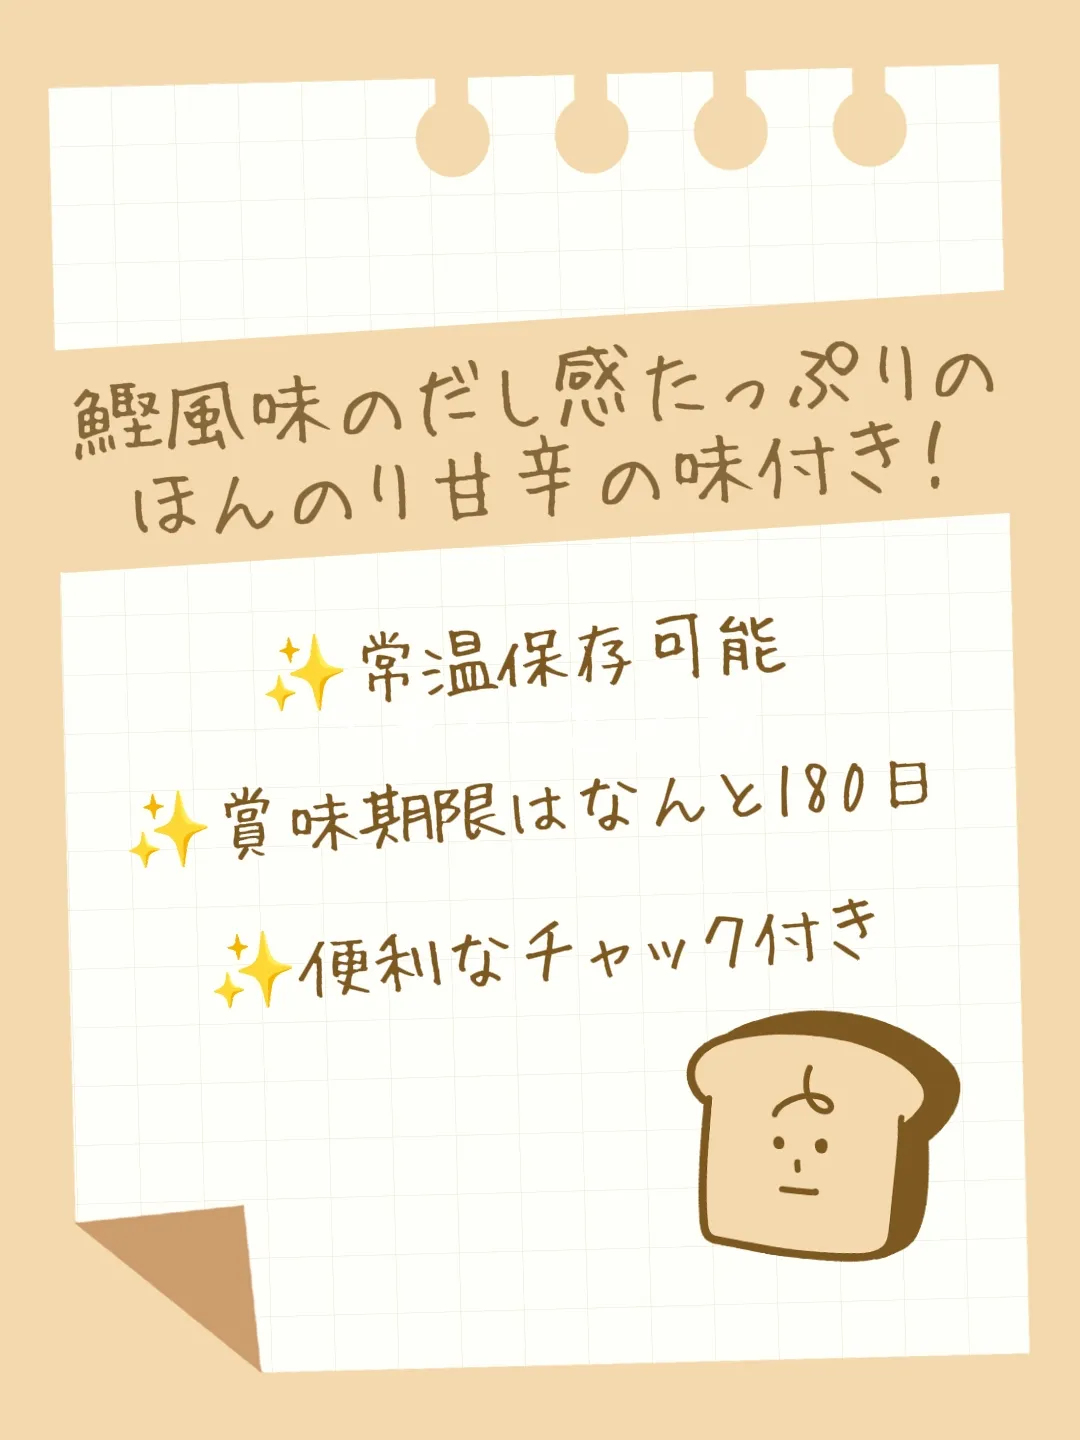 鰹風味のだし感たっぷりの
ほんのり甘辛の味付き!
✨常温保存可能
✨賞味期限はなんと180日
✨便利なチャック付き